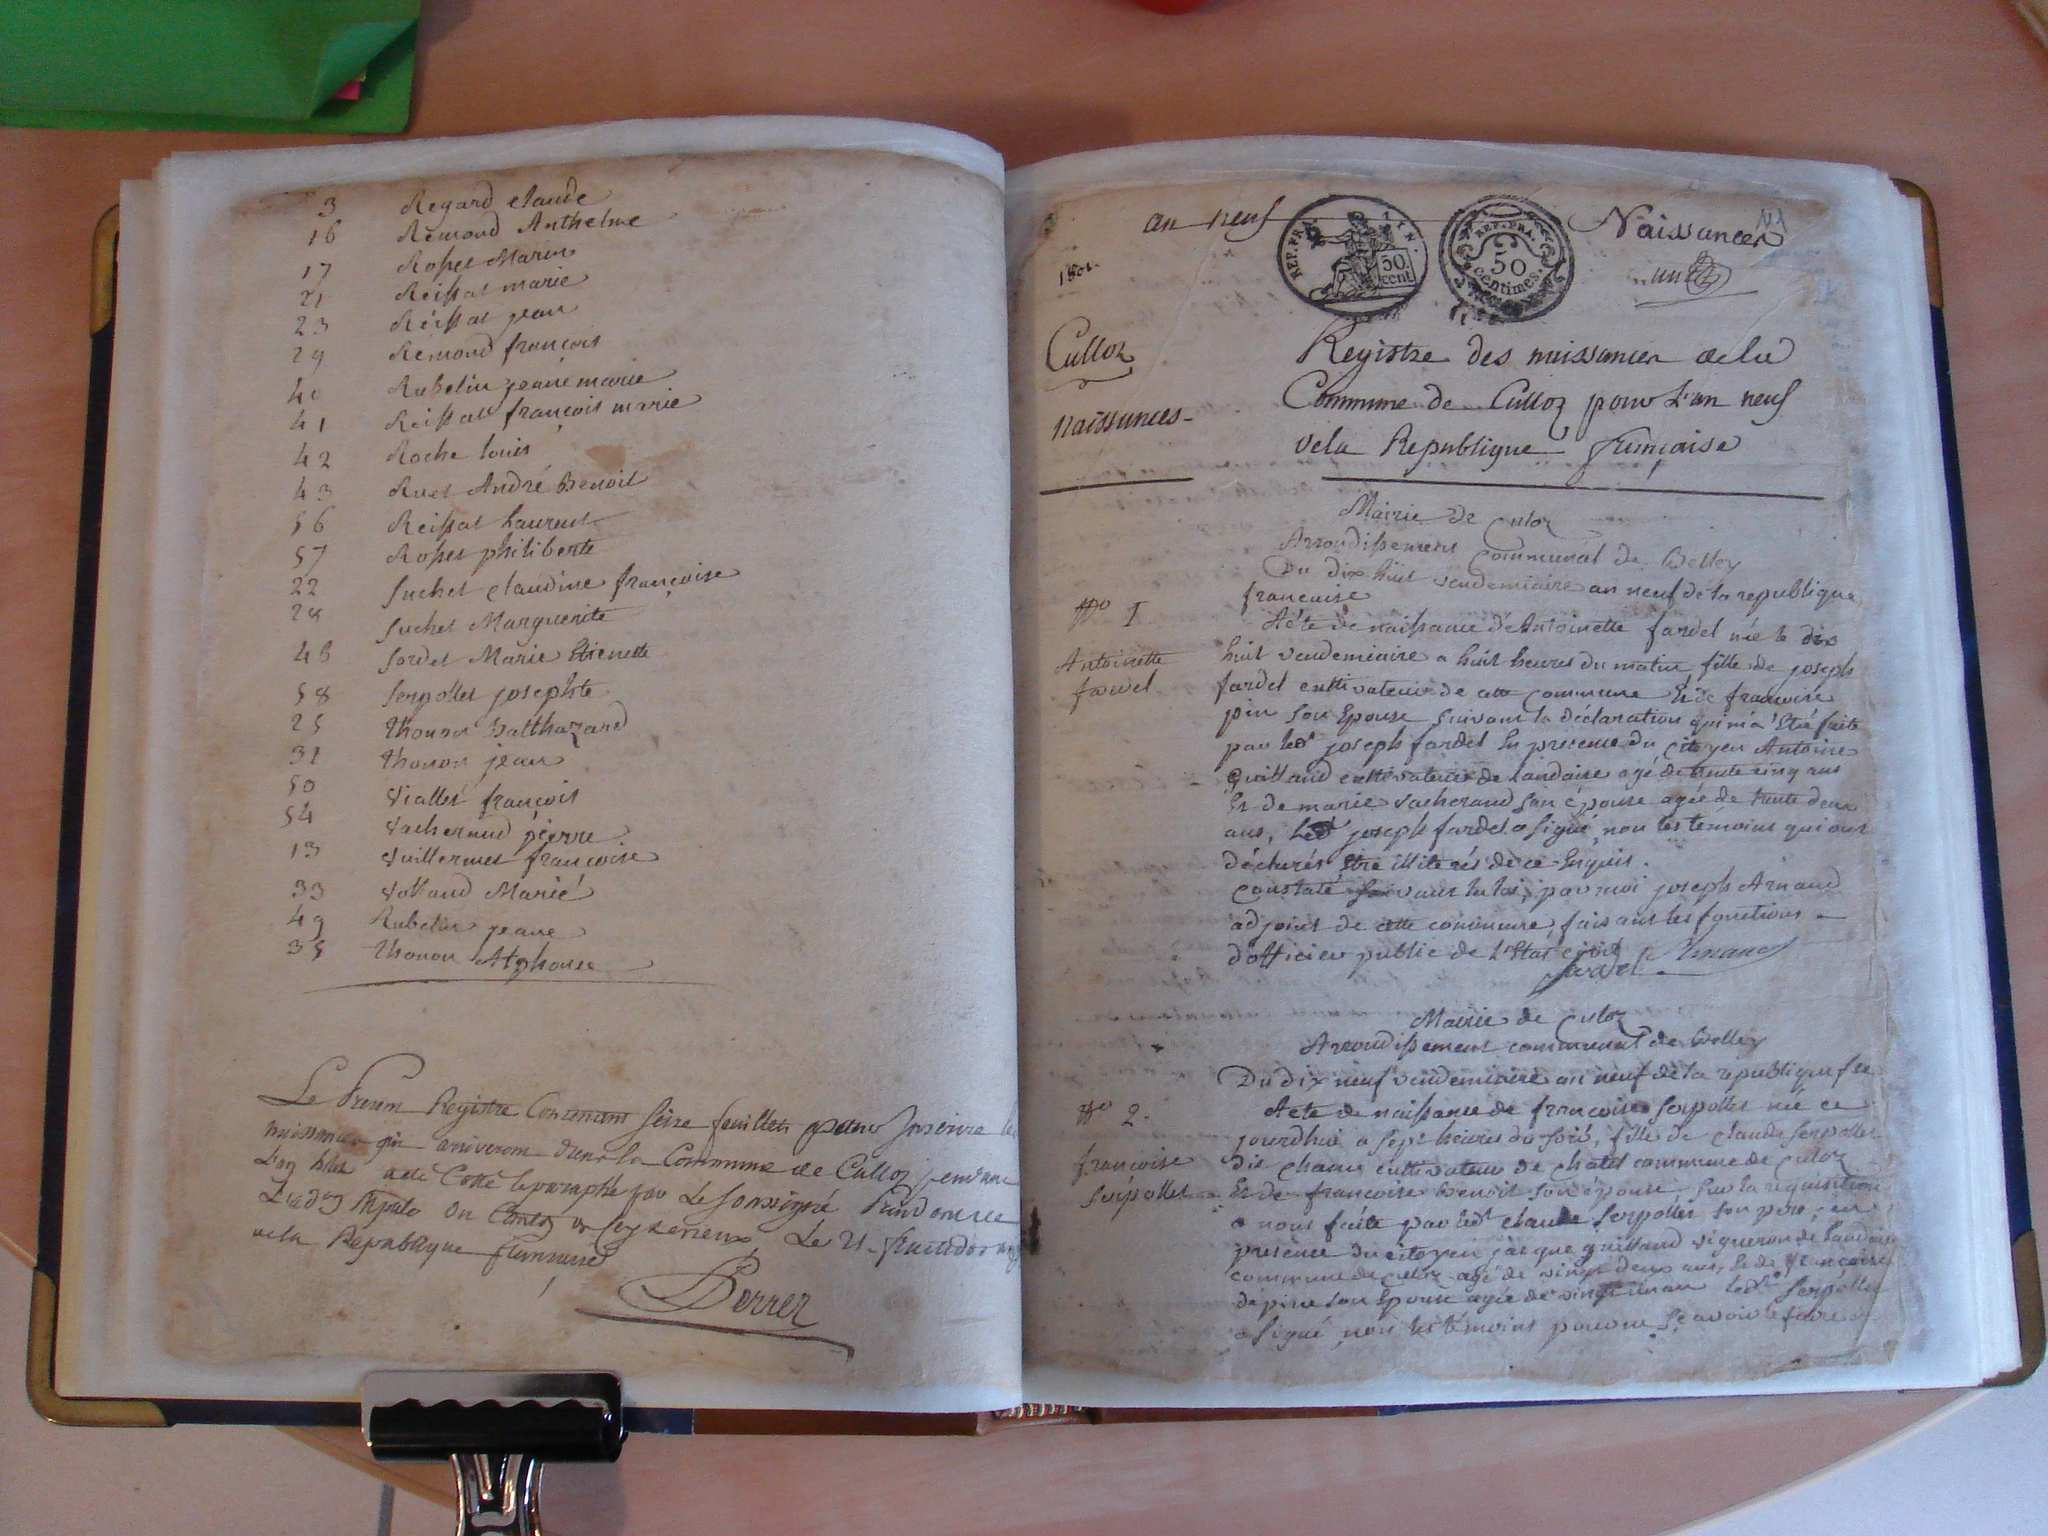 3 Regard claude
16 Rémond Anthelme
17 Rosset Marin
21 Reissat marie
23 Réissat jean
29 Rémond françois
40 Rubelin jeane marie
41 Reissat françois marie
42 Roche louis
43 Ruet André Benoit
56 Reissat Laurent
57 Rosset philiberte
22 Suchet claudine françoise
28 Suchet Marguerite
48 Sordet Marie Etienette
58 Serpollet josephte
25 thonon Balthazard
31 thonon jean
50 Viallet françois
54 Vacheraud pierre
13 Vuillermet françoise
33 Volland Marié
49 Rubelin jeane
35 thonon Alphonse
Le Présent Registre Contenant seize feuillets pour Inscrire les
naissances qui ariveront dans la Commune de Culloz pendant
L'an neuf a été Cotté & paraphé par Le Soussigné Président
du Canton de Seyssel Le 21 fructidor
de la République françoise
Perret
an neuf
REP. FRA.
50 cent
REP. FRA. 50 centimes.
Naissances
1801
un
Culloz
naissances
Registre des naissances de la
Commune de Culloz pour L'an neuf
de la République française
Mairie de Culoz
Arrondissement Communal de Belley
Du dix huit vendemiaire an neuf de la republique
francaise
No 1
Antoinette
fardel
Acte de naissance d'Antoinette fardel née le dix
huit vendemiaire a huit heures du matin fille de joseph
fardel cultivateur de cette commune Et de françoise
pin son Epouse suivant la déclaration qui m'a été faite
par ledt joseph fardel En presence du citoyen Antoine
Guilland cultivateur de Landaise agé de trente cinq ans
Et de marie Vacheraud son épouse agée de trente deux
ans, ledt joseph fardel a signé, non les temoins qui ont
déclarés Etre illiterés de ce Enquis.
Constaté suivant la loi, par moi joseph Arnand
adjoint de cette commune, faisant les fonctions
d'officier public de L'Etat civil
fardel Arnand
Mairie de Culoz
Arrondissement communal de Belley
Du dix neuf vendemiaire an neuf de la republique fse
No 2.
françoise
Serpollet
Acte de naissance de françoise Serpollet née ce
jourdhui a sept heures du soir, fille de claude Serpollet
dit cultivateur de chatel commune de Culoz
Et de françoise Benoit son épouse sur la requisition
a nous faite par ledt claude Serpollet son pere, en
presence du citoyen jacque guilland vigneron de Landaise
commune de Culoz agé de vingt deux ans, Et de françoise
depine son Epouse agée de vingt un an ledt Serpollet
a signé non les témoins pour ne sçavoir le faire